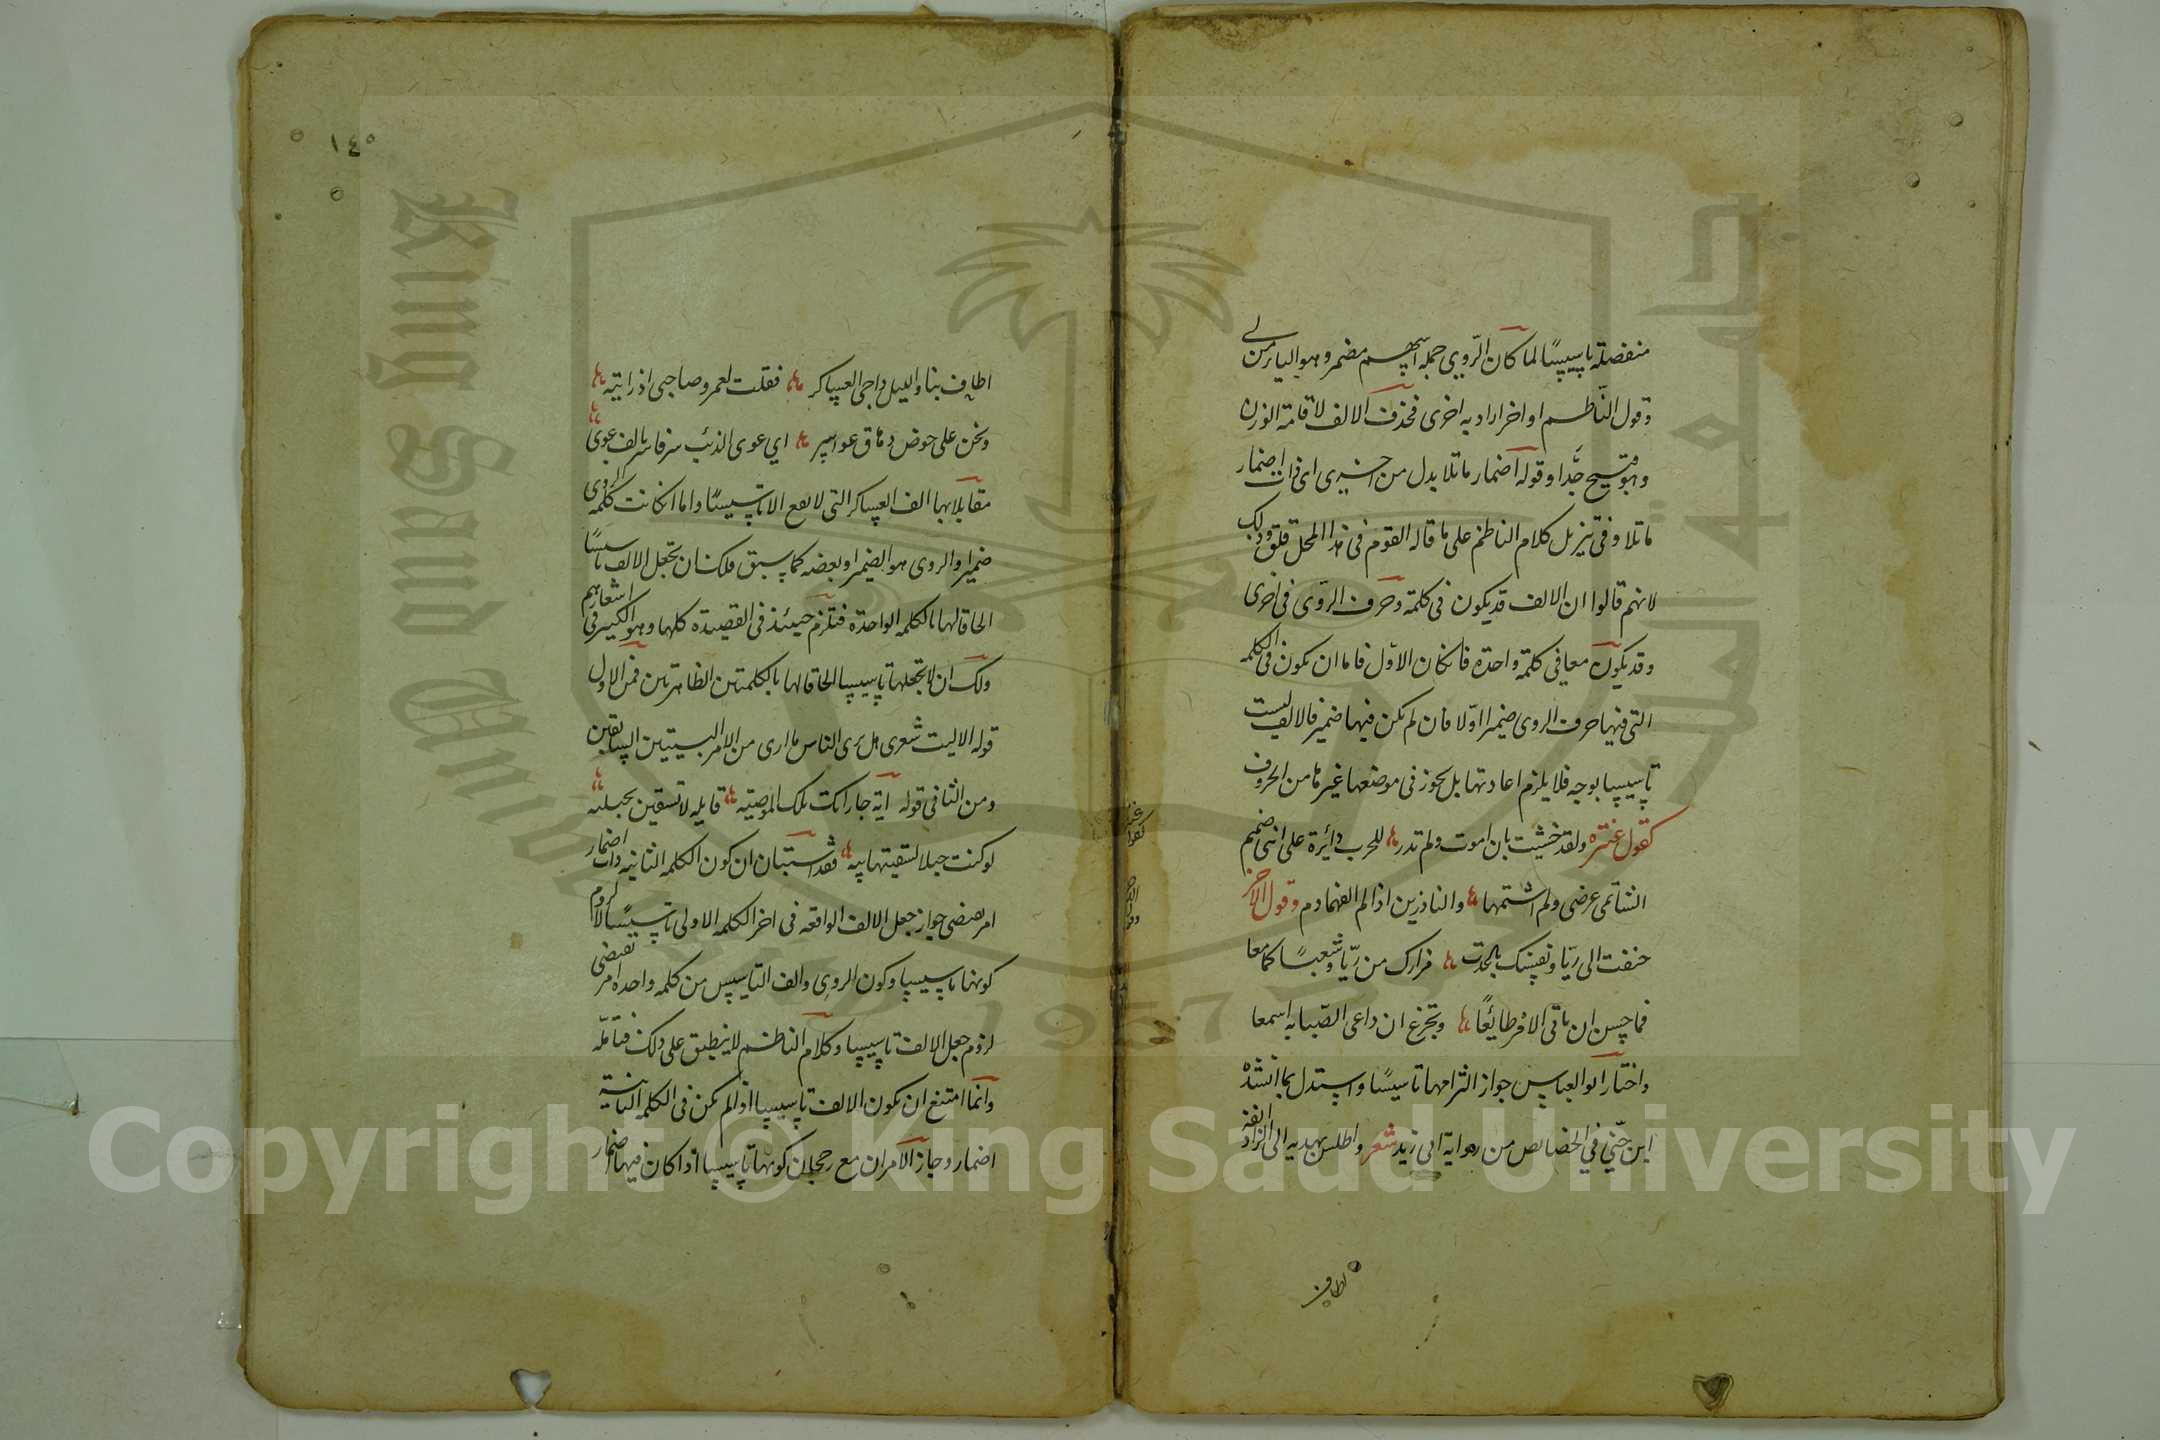 منفصلة تاسيسًا لما كان الروي جملة اسم مضمر وهو اليا من لي
وقول الناظم او اخرا راد به اخرى فحذف الالف لاقامة الوزن
وهو قبيح جدا وقوله اضمار ما تلا بدل من اخرى اى ذات اضمار
ما تلا وفى تنزيل كلام الناظم على ما قاله القوم فى هذا المحل قلق وذلك
لانهم قالوا ان الالف قد يكون فى كلمة وحرف الروى فى اخرى
وقد يكون معا فى كلمة واحدة فان كان الاول فاما ان يكون فى الكلمة
التى فيها حرف الروى ضميرا اولا فان لم يكن فيها ضمير فالالف ليست
تاسيسا بوجه فلا يلزم اعادتها بل يجوز فى موضعها غيرها من الحروف
كقول عنتره ولقد خشيت بان اموت ولم تدر للحرب دائرة على ابنى ضمضم
الشاتمى عرضى ولم اشتمهما والناذرين اذا لم القهما دمى وقول الاخر
حننت الى ريّا ونفسك باعدت مزارك من ريّا وشعباكما معا
فما حسن ان تاتى الامر طائعًا وتجزع ان داعى الصبابة اسمعا
واختار ابو العباس جواز التزامها تاسيسًا واستدل بما انشده
ابن جنى فى الخصائص من رواية ابى زيد شعر واطلس يهديه الى الزاد انفه
اطاف
١٤٥
اطاف بنا والليل داجى العساكر فقلت لعمرو صاحبى اذ رايته
ونحن على خوص دقاق عواسر اي عوى الذئب سر فاسر الف عوى
مقابلا بها الف العساكر التى لا تقع الا تاسيسًا واما ان كانت كلمة الروى
ضميرا والروى هو الضمير او بعضه كما سبق فلك ان تجعل الالف تاسيسًا
الحاقا لها بالكلمة الواحدة فتلزم حينئذ فى القصيدة كلها وهو الكثير فى اشعارهم
ولك ان لا تجعلها تاسيسا الحاقا لها بالكلمتين الظاهرتين فمن الاول
قوله الا ليت شعرى هل يرى الناس ما ارى من الامر البيتين السابقين
ومن الثانى قوله اية جاراتك تلك الموصيه قايله لا تسقين بحبليه
لو كنت حبلا لسقيتها بيه فقد استبان ان كون الكلمة الثانية ذات اضمار
امر يقتضى جواز جعل الالف الواقعة فى اخر الكلمة الاولى تاسيسًا لا لزوم
كونها تاسيسا وكون الروى والف التاسيس من كلمة واحدة امر يقتضى
لزوم جعل الالف تاسيسا وكلام الناظم لا ينطبق على ذلك فتامله
وانما امتنع ان يكون الالف تاسيسا اذا لم يكن فى الكلمة الثانية
اضمار وجاز الامران مع رجحان كونها تاسيسا اذا كان فيها اضمار
King Saud University
1957
Copyright © King Saud University